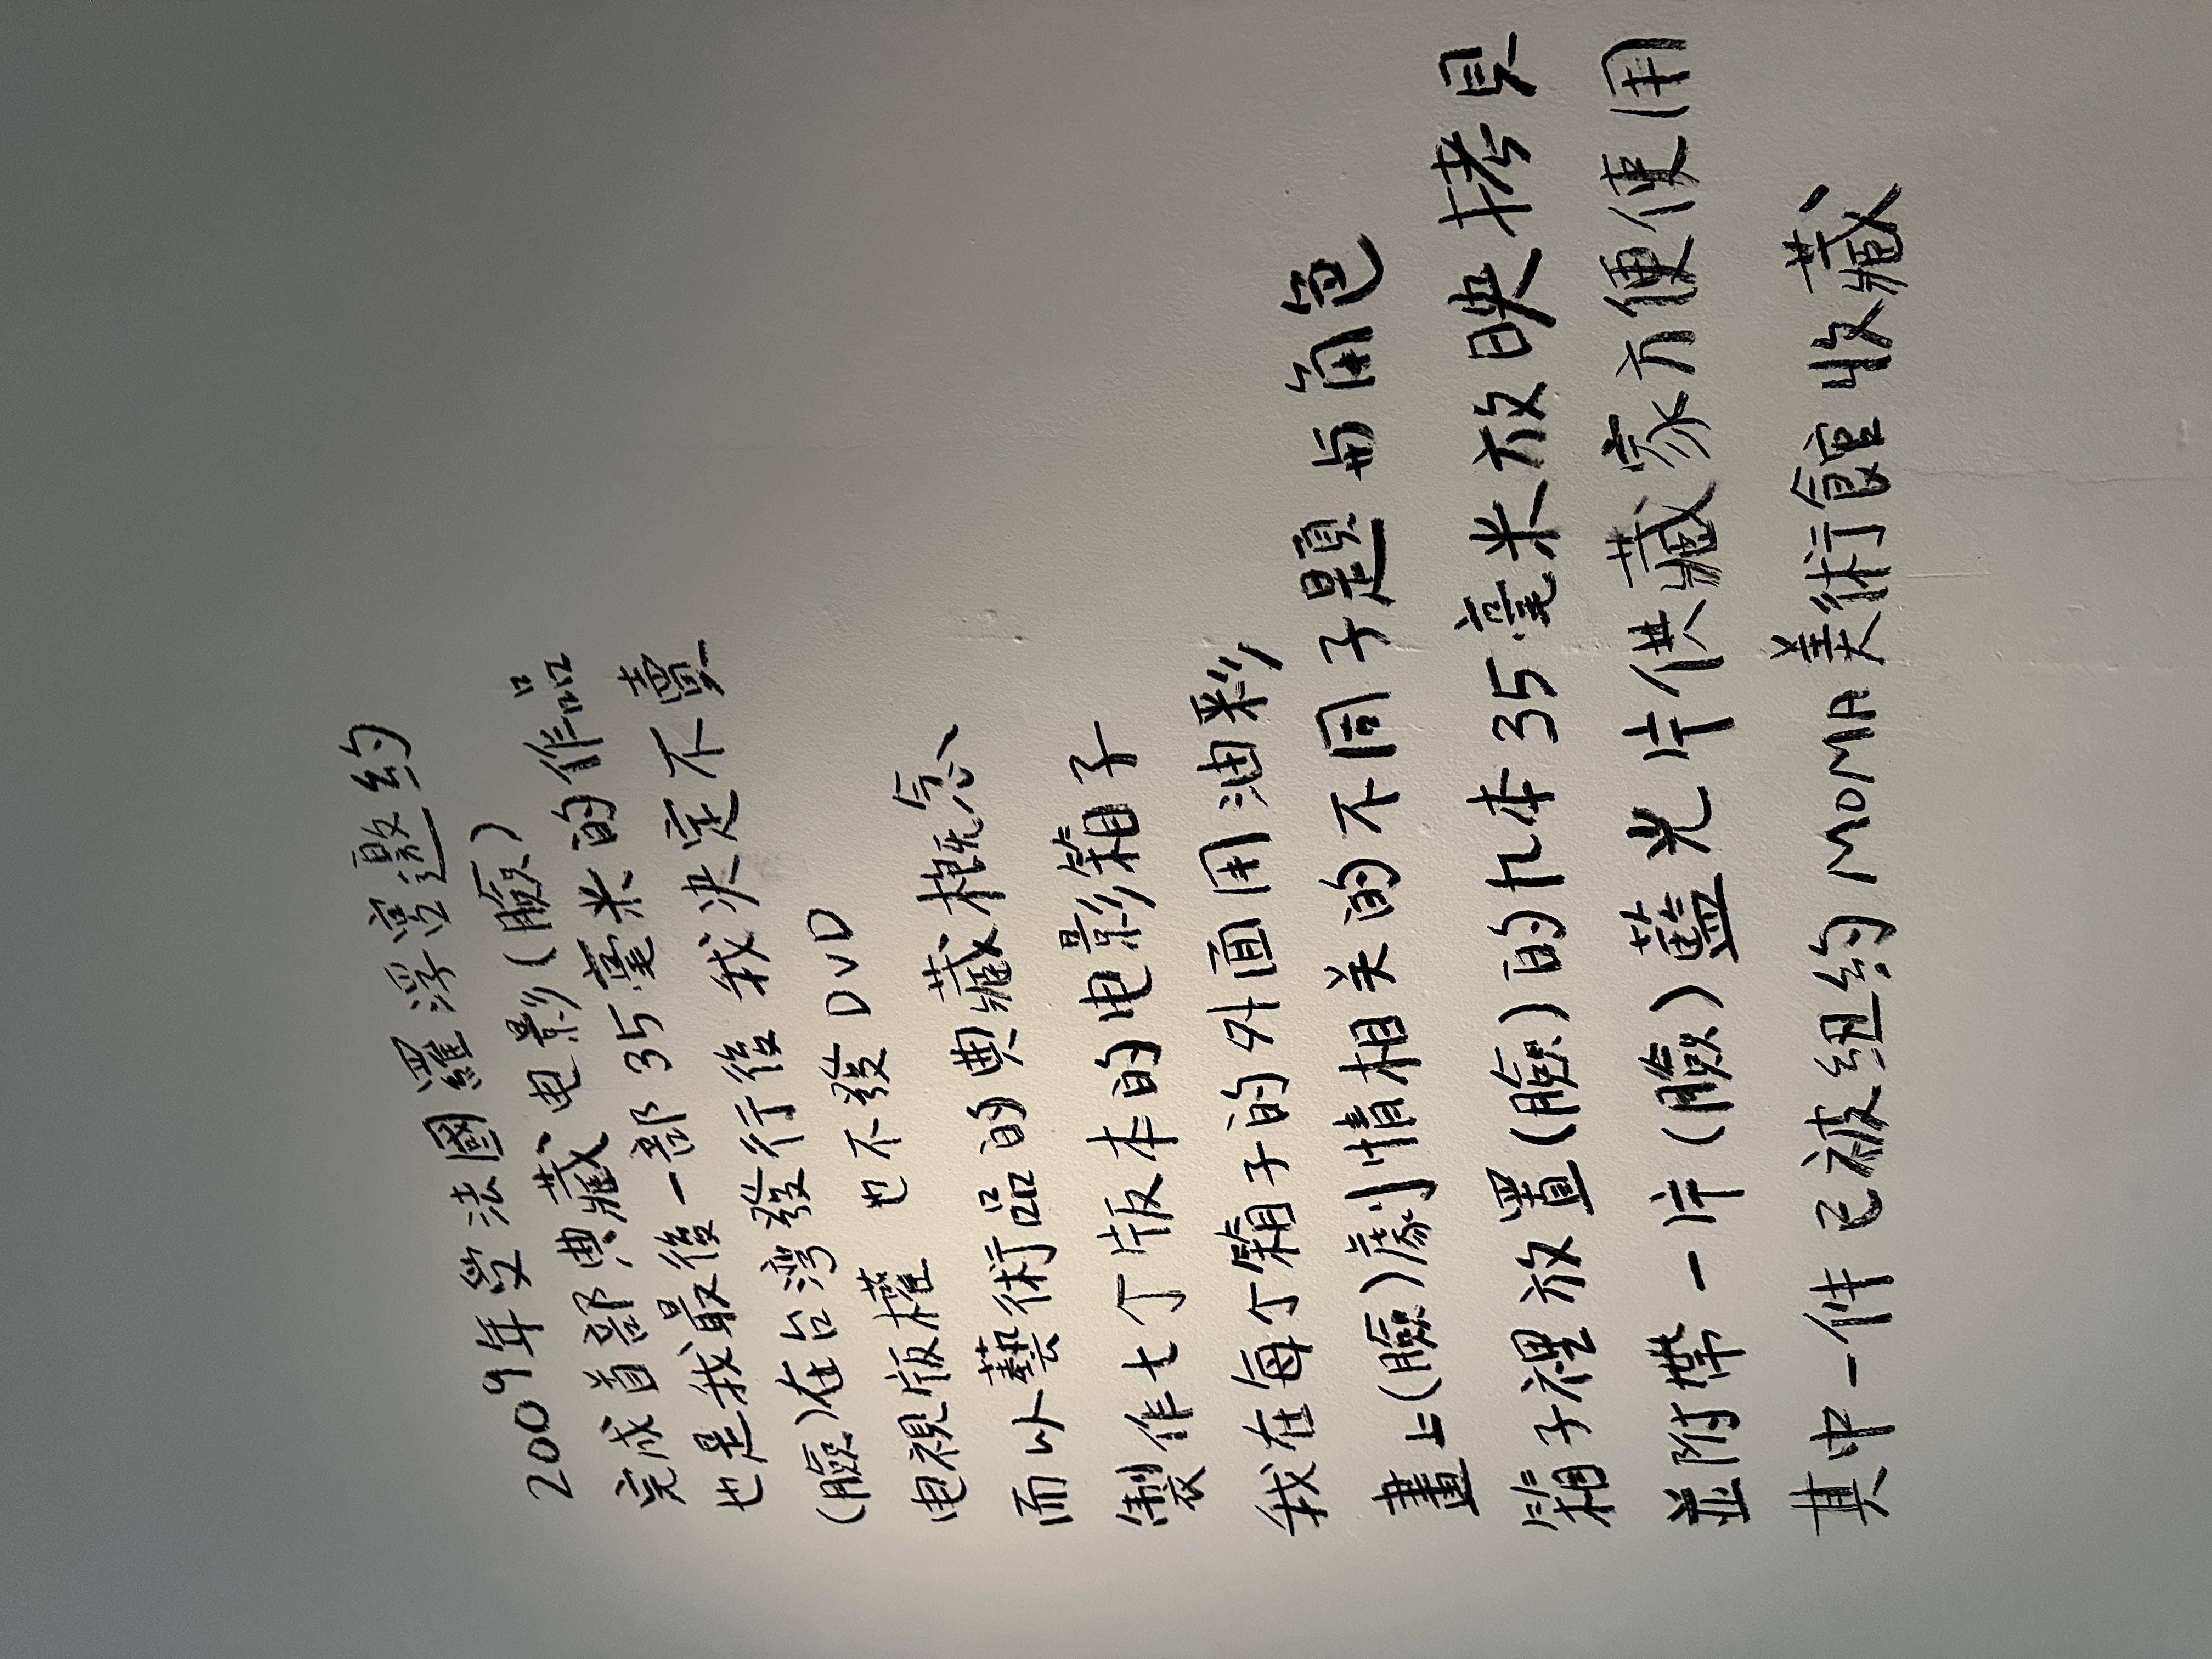 2009年受法國羅浮宮邀約
完成首部典藏电影(臉)
也是我最後一部35毫米的作品
(臉)在台湾發行後 我决定不賣
电視版權 也不發DVD
而以藝術品的典藏概念
製作七个版本的电影箱子
我在每个箱子的外面用油彩
畫上(臉)劇情相关的不同子題与角色
箱子裡放置(臉)的九本35毫米放映拷貝
並附帶一片(臉)藍光片供藏家方便使用
其中一件已被纽约MOMA美術館收藏